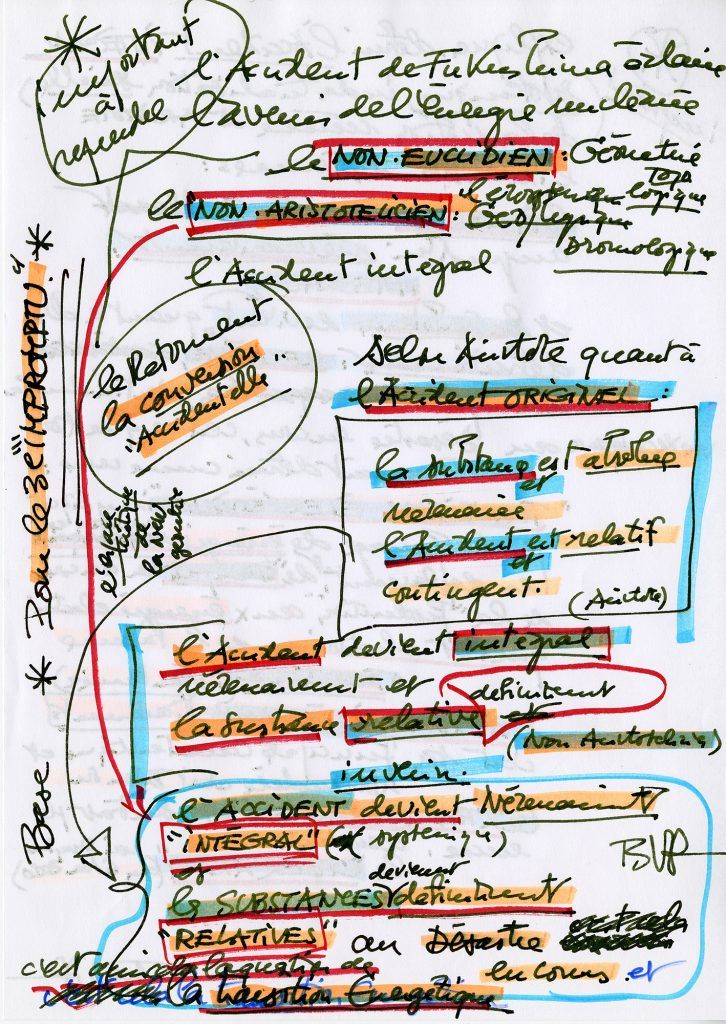 important
à
l'Accident de Fukushima éclaire
l'avenir de l'énergie nucléaire
le NON-EUCLIDIEN : Géométrie
Topo
logique
le NON-ARISTOTELICIEN :
Dromologique
l'Accident intégral
le Retournement
la conversion
"Accidentelle"
Selon Aristote quant à
l'Accident ORIGINEL :
la substance est absolue
et
nécessaire
l'Accident est relatif
et
contingent.
(Aristote)
Base * Pour le 3e "IMPROMPTU" *
l'Accident devient intégral
nécessairement et définitivement
la substance relative et
(Non Aristotélicien)
l'ACCIDENT devient Nécessairement
"INTÉGRAL" (et systémique)
et devient
les SUBSTANCES définitivement
"RELATIVES" au Désastre
en cours et
c'est ainsi la question de
la transition Energétique